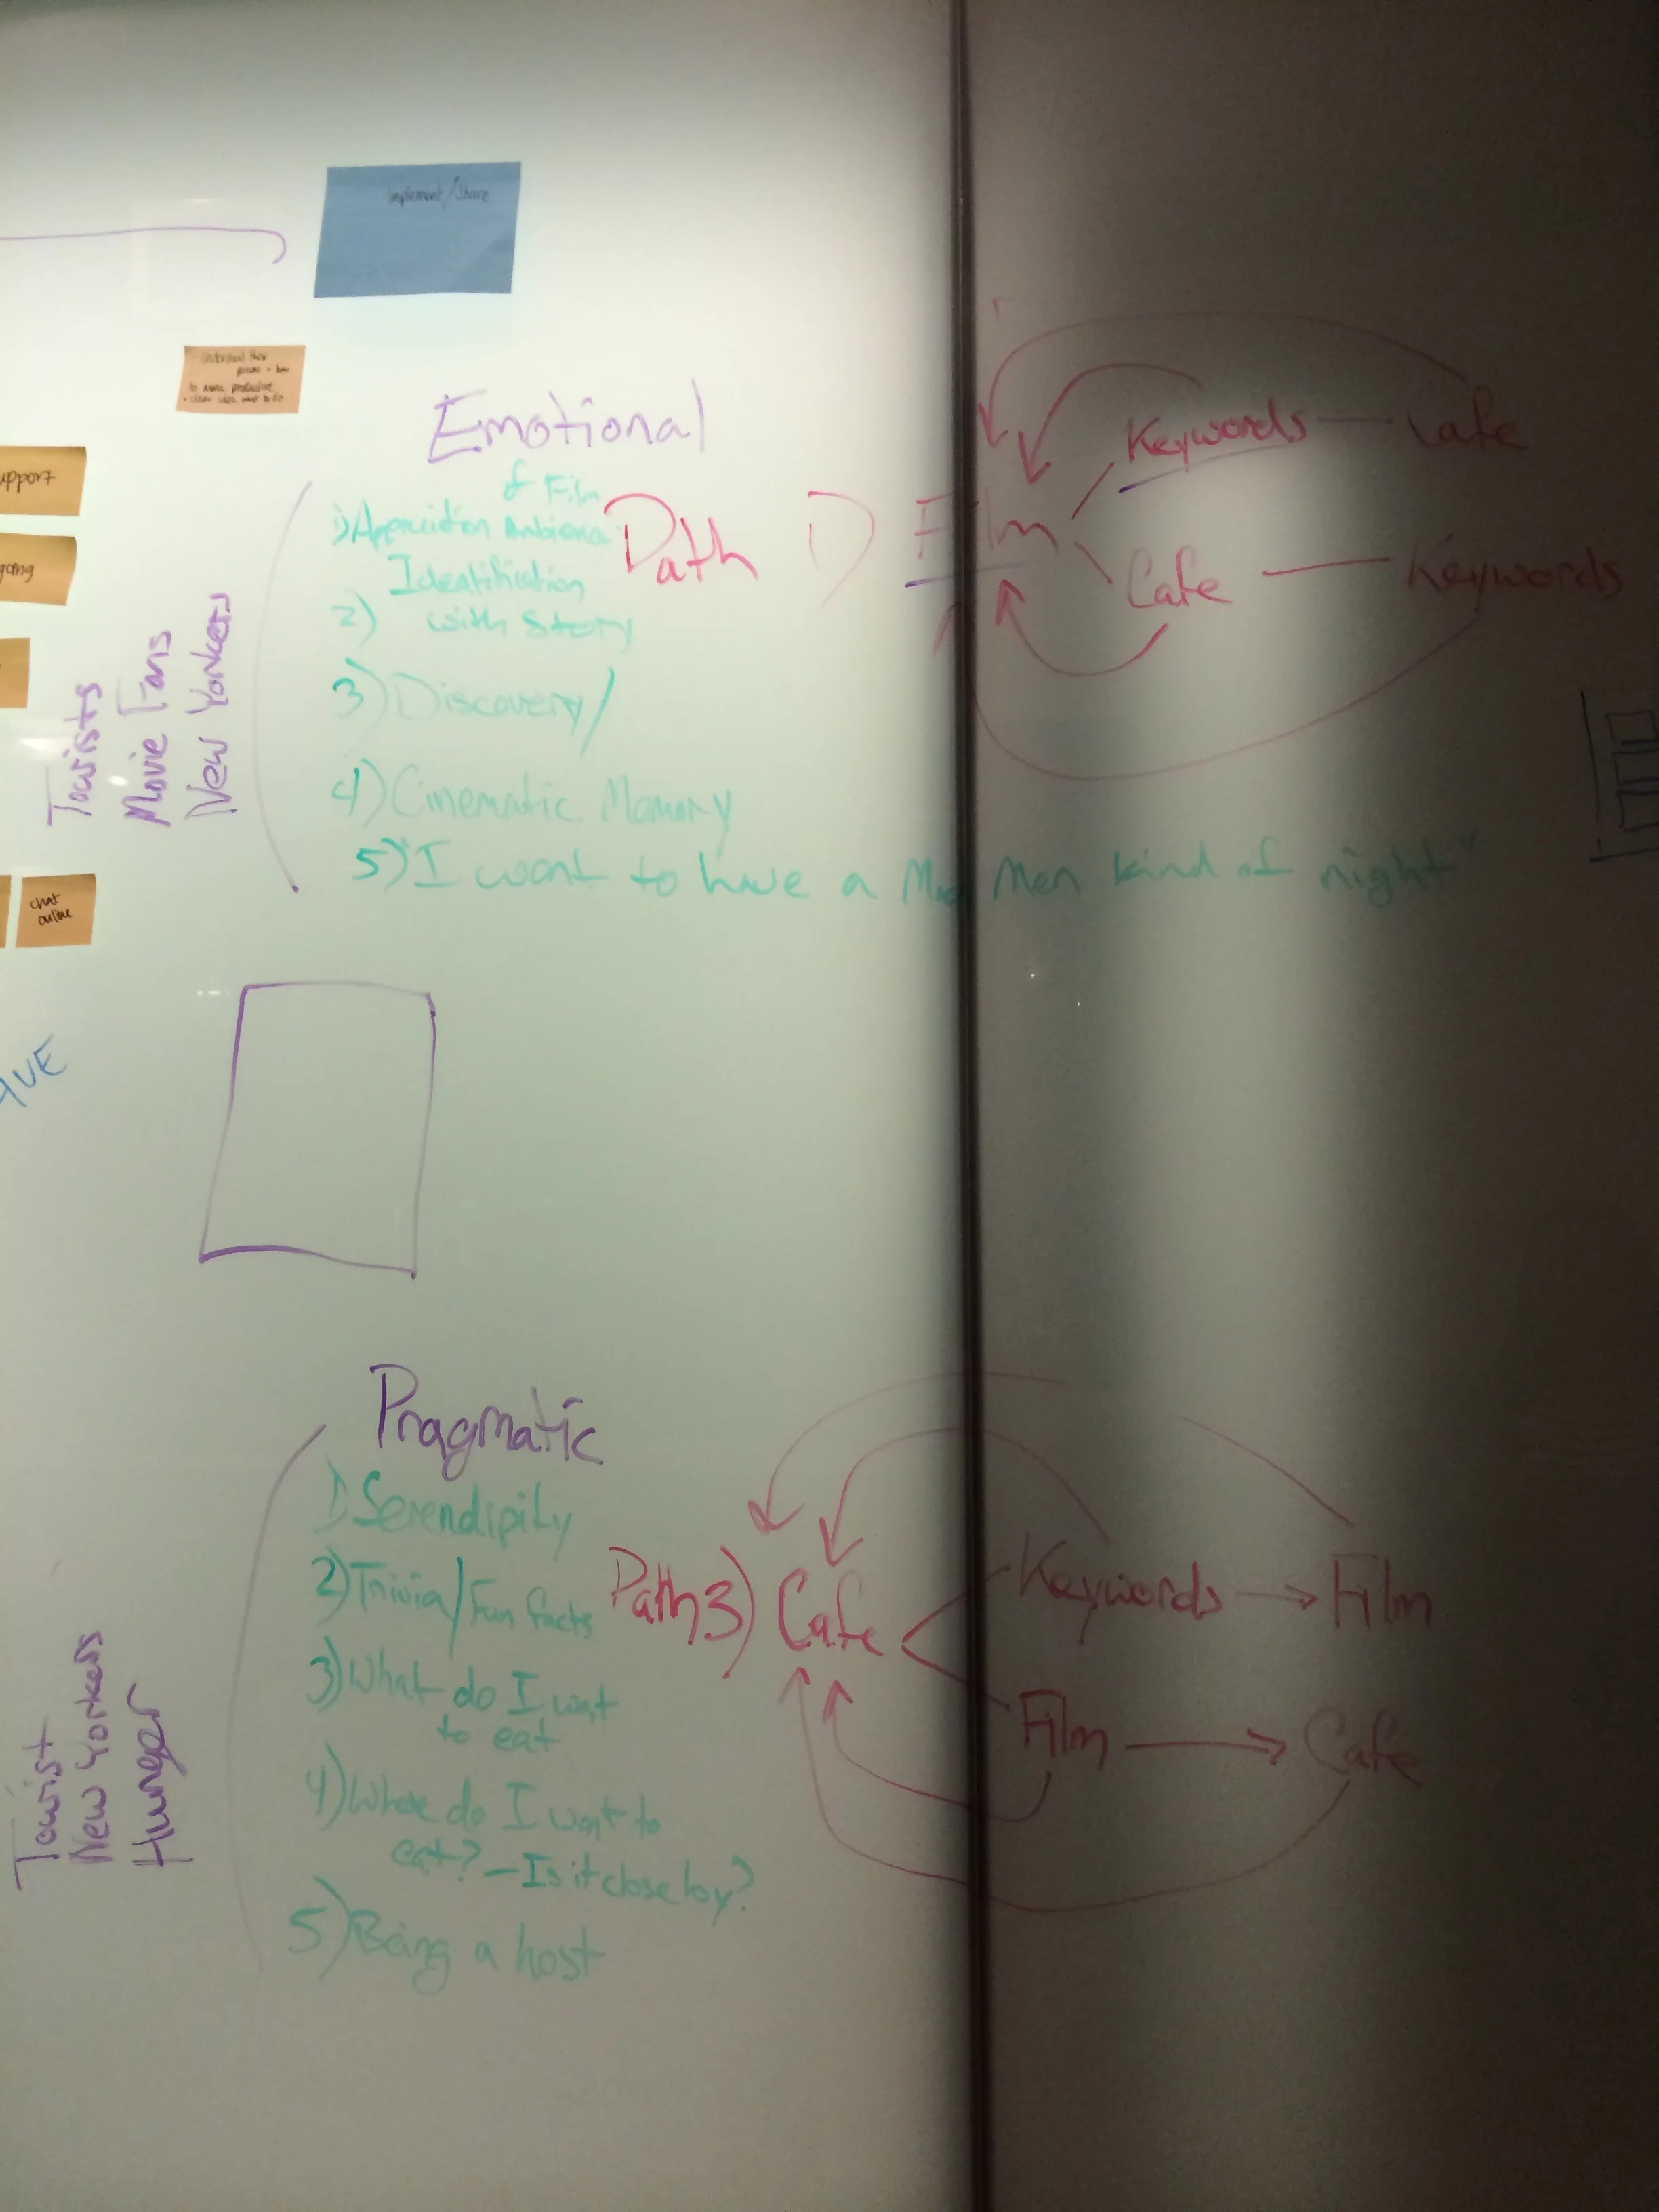 Implement/Share
to more productive
upport
going
chat
online
Tourists
Movie Fans
New Yorkers
Emotional
of Film
1) Appreciation Ambience
Identification
2) with Story
3) Discovery/
4) Cinematic Memory
5) "I want to have a Mad Men kind of night"
Path 1) Film
Keywords — Cafe
Cafe — Keywords
Tourist
New Yorkers
Hunger
Pragmatic
1) Serendipity
2) Trivia/Fun facts
3) What do I want
to eat
4) Where do I want to
eat? – Is it close by?
5) Being a host
Path 3) Cafe
Keywords → Film
Film → Cafe